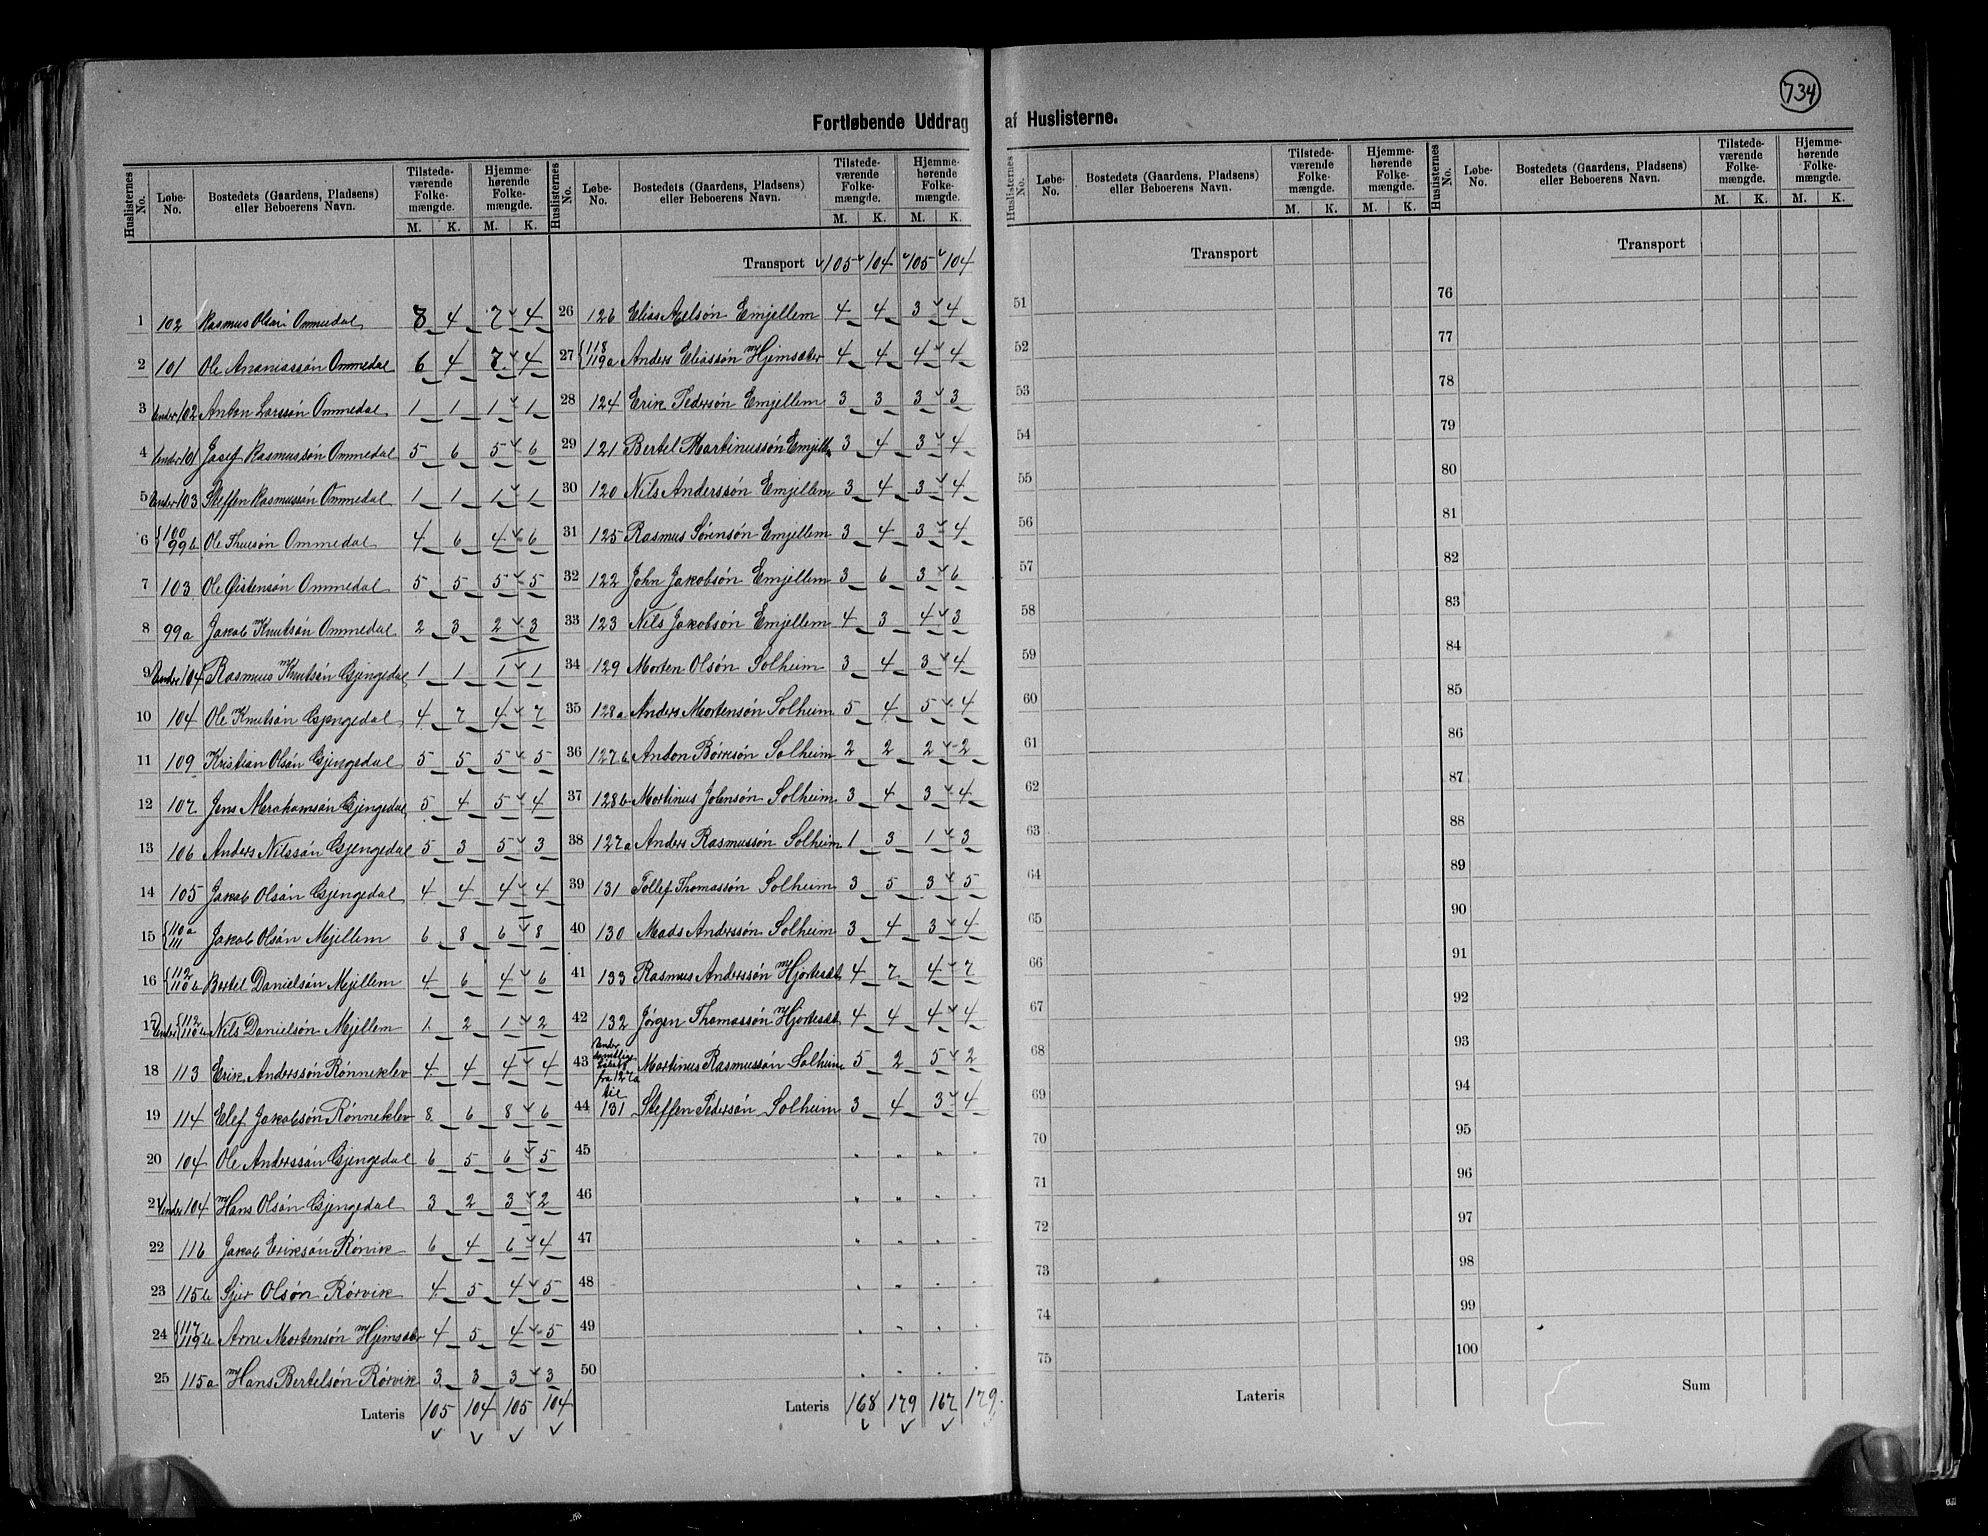 734
Fortløbende Uddrag af Huslisterne.
Huslisternes No. Løbe-No. Bostedets (Gaardens, Pladsens) eller Beboerens Navn. Tilstedeværende Folkemængde. M. K. Hjemmehørende Folkemængde. M. K.
1 102 Rasmus Olsøn Ommedal 8 4 7 4
2 101 Ole Ananiassøn Ommedal 6 4 7 4
3 Under 102 Anton Larssøn Ommedal 1 1 1 1
4 Under 101 Josef Rasmussøn Ommedal 5 6 5 6
5 Under 103 Steffen Rasmussøn Ommedal 1 1 1 1
6 {100 99b Ole Thuesøn Ommedal 4 6 4 6
7 103 Ole Østensøn Ommedal 5 5 5 5
8 99a Jakob Knutsøn Ommedal 2 3 2 3
9 Under 104 Rasmus Knutsøn Gjengedal 1 1 1 1
10 104 Ole Knutsøn Gjengedal 4 7 4 7
11 109 Kristian Olsøn Gjengedal 5 5 5 5
12 107 Jens Abrahamsøn Gjengedal 5 4 5 4
13 106 Anders Nilssøn Gjengedal 5 3 5 3
14 105 Jakob Olsøn Gjengedal 4 4 4 4
15 {110a 111 Jakob Olsøn Mjellem 6 8 6 8
16 {112 110b Bertel Danielsøn Mjellem 4 6 4 6
17 Under {112 110b Nils Danielsøn Mjellem 1 2 1 2
18 113 Erik Anderssøn Rønneklev 4 4 4 4
19 114 Elef Jakobsøn Rønneklev 8 6 8 6
20 104 Ole Anderssøn Gjengedal 6 5 6 5
21 Under 104 Hans Olsøn Gjengedal 3 2 3 2
22 116 Jakob Eriksøn Rørvik 6 4 6 4
23 115b Sjur Olsøn Rørvik 4 5 4 5
24 {117 119b Arne Mortensøn Hjemsæter 4 5 4 5
25 115a Hans Bertelsøn Rørvik 3 3 3 3
Lateris 105 104 105 104
Huslisternes No. Løbe-No. Bostedets (Gaardens, Pladsens) eller Beboerens Navn. Tilstedeværende Folkemængde. M. K. Hjemmehørende Folkemængde. M. K.
Transport 105 104 105 104
26 126 Elias Axelsøn Emjellem 4 4 3 4
27 {118 119a Anders Eliassøn Hjemsæter 4 4 4 4
28 124 Erik Pedersøn Emjellem 3 3 3 3
29 121 Bertel Martinussøn Emjellm 3 4 3 4
30 120 Nils Anderssøn Emjellem 3 4 3 4
31 125 Rasmus Sørensøn Emjellem 3 4 3 4
32 122 John Jakobsøn Emjellem 3 6 3 6
33 123 Nils Jakobsøn Emjellem 4 3 4 3
34 129 Morten Olsøn Solheim 3 4 3 4
35 128a Anders Mortensøn Solheim 5 4 5 4
36 127b Anton Børresøn Solheim 2 2 2 2
37 128b Martinus Johnsøn Solheim 3 4 3 4
38 127a Anders Rasmussøn Solheim 1 3 1 3
39 131 Tollef Thomassøn Solheim 3 5 3 5
40 130 Mads Anderssøn Solheim 3 4 3 4
41 133 Rasmus Anderssøn Hjortesæt 4 7 4 7
42 132 Jørgen Thomassøn Hjortesæt 4 4 4 4
43 Under samtlige fra 127a til 131 Martinus Rasmussøn Solheim 5 2 5 2
44 Steffen Pedersøn Solheim 3 4 3 4
45
46
47
48
49
50
Lateris 168 179 167 179
Huslisternes No. Løbe-No. Bostedets (Gaardens, Pladsens) eller Beboerens Navn. Tilstedeværende Folkemængde. M. K. Hjemmehørende Folkemængde. M. K.
Transport
51
52
53
54
55
56
57
58
59
60
61
62
63
64
65
66
67
68
69
70
71
72
73
74
75
Lateris
Huslisternes No. Løbe-No. Bostedets (Gaardens, Pladsens) eller Beboerens Navn. Tilstedeværende Folkemængde. M. K. Hjemmehørende Folkemængde. M. K.
Transport
76
77
78
79
80
81
82
83
84
85
86
87
88
89
90
91
92
93
94
95
96
97
98
99
100
Sum